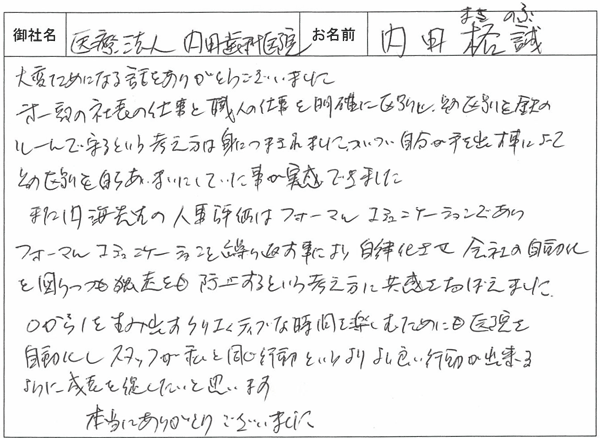 御社名 医療法人 内田歯科医院 お名前 内田 格誠 まさのぶ
大変ためになる話をありがとうございました
第一部の社長の仕事と職人の仕事を明確に区別し、その区別を鉄の
ルールで守るという考え方は身につまされました。ついつい自分が手を出す事によって
その区別を自らあいまいにしていた事が実感できました
また内海先生の人事評価はフォーマルコミュニケーションであり
フォーマルコミュニケーションを繰り返す事により自律化させ会社の自動化
を図りつつも暴走をも防止するという考え方に共感をおぼえました。
0から1を生み出すクリエイティブな時間を楽しむためにも医院を
自動化しスタッフが私と同じ行動というよりより良い行動が出来る
ように成長を促したいと思います
本当にありがとうございました